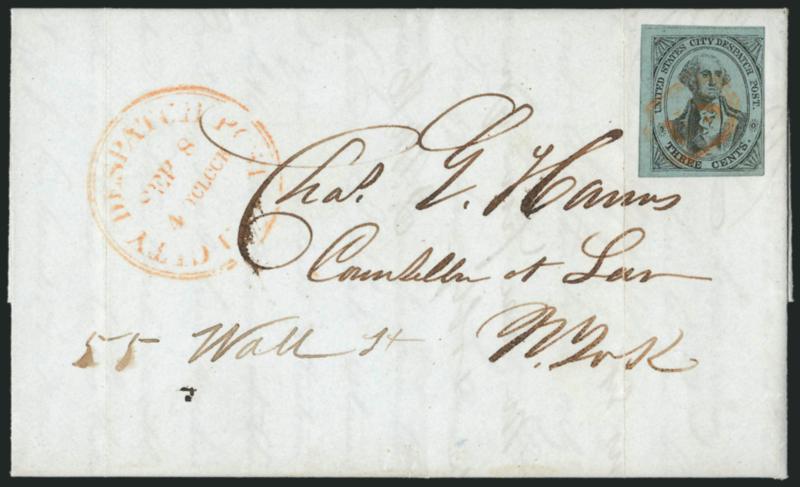 UNITED STATES CITY DESPATCH POST.
THREE CENTS.
CITY DESPATCH POST
SEP 8
4 O'CLOCK
Chas. G. Harris
Counsellor at Law
55 Wall St N. York